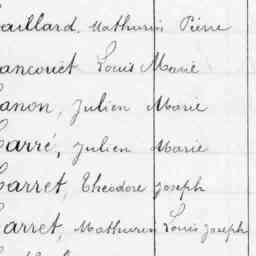 aillard, Mathurin Pierre
ancouët Louis Marie
anon, Julien Marie
Carré, Julien Marie
Carret, Théodore Joseph
Carret, Mathurin Louis Joseph